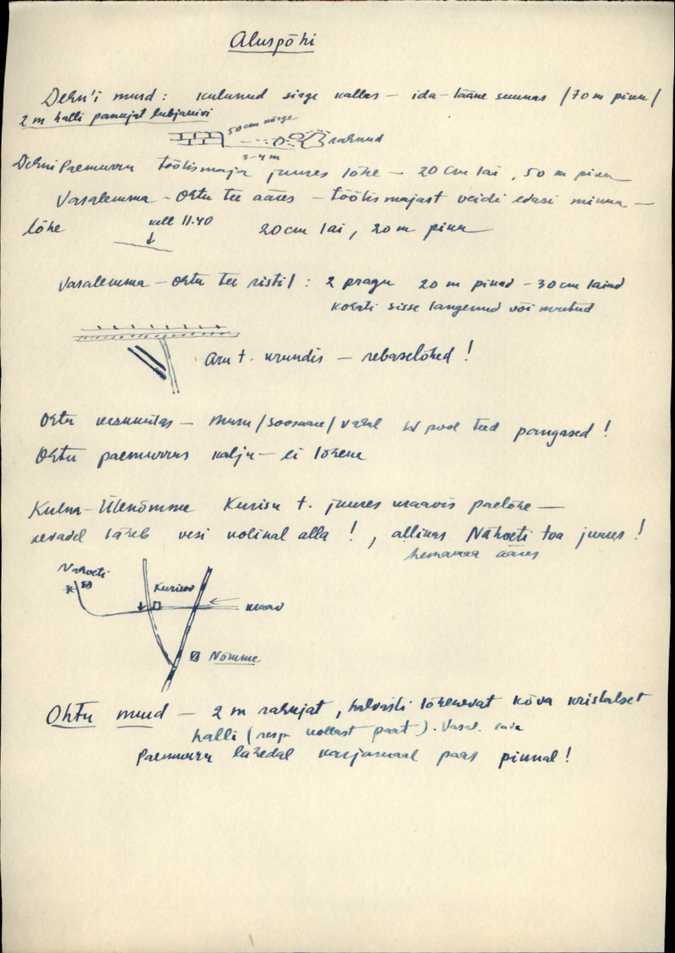 Aluspõhi
Dehn'i murd: kulunud sirge kallas – ida-lääne suunas /70 m pikk/
2 m halli paksujat lubjakivi
50 cm kõrge
rahnud
3-4 m
Dehni Paemurru töölismaja juures lõhe – 20 cm lai, 50 m pikk
Vasalemma – Ohtu tee ääres – töölismajast veidi edasi minna –
lõhe kell 11.40 20 cm lai, 20 m pikk
Vasalemma – Ohtu tee ristil: 2 pragu 20 m pikad – 30 cm laiad
korsti sisse langenud või
Aru t. krundis – rebaselõhed!
Ohtu – Muru /Soosaare/ vahel W pool teed pangased!
Ohtu paemurrus kalju – ei lõhene
Kulna-Ülenõmme Kurisu t. juures kraavis paelõhe –
kevadel läheb vesi kolinal alla!, allikas Nähveti toa juures!
heinamaa ääres
Nähveti
Kurisoo
kraav
Nõmme
Ohtu murd – 2 m rahujat, halvasti lõhenevat kõva kristalset
halli (resp. kollast paat). Vasal.
Paemurru lähedal karjamaal paas pinnal!